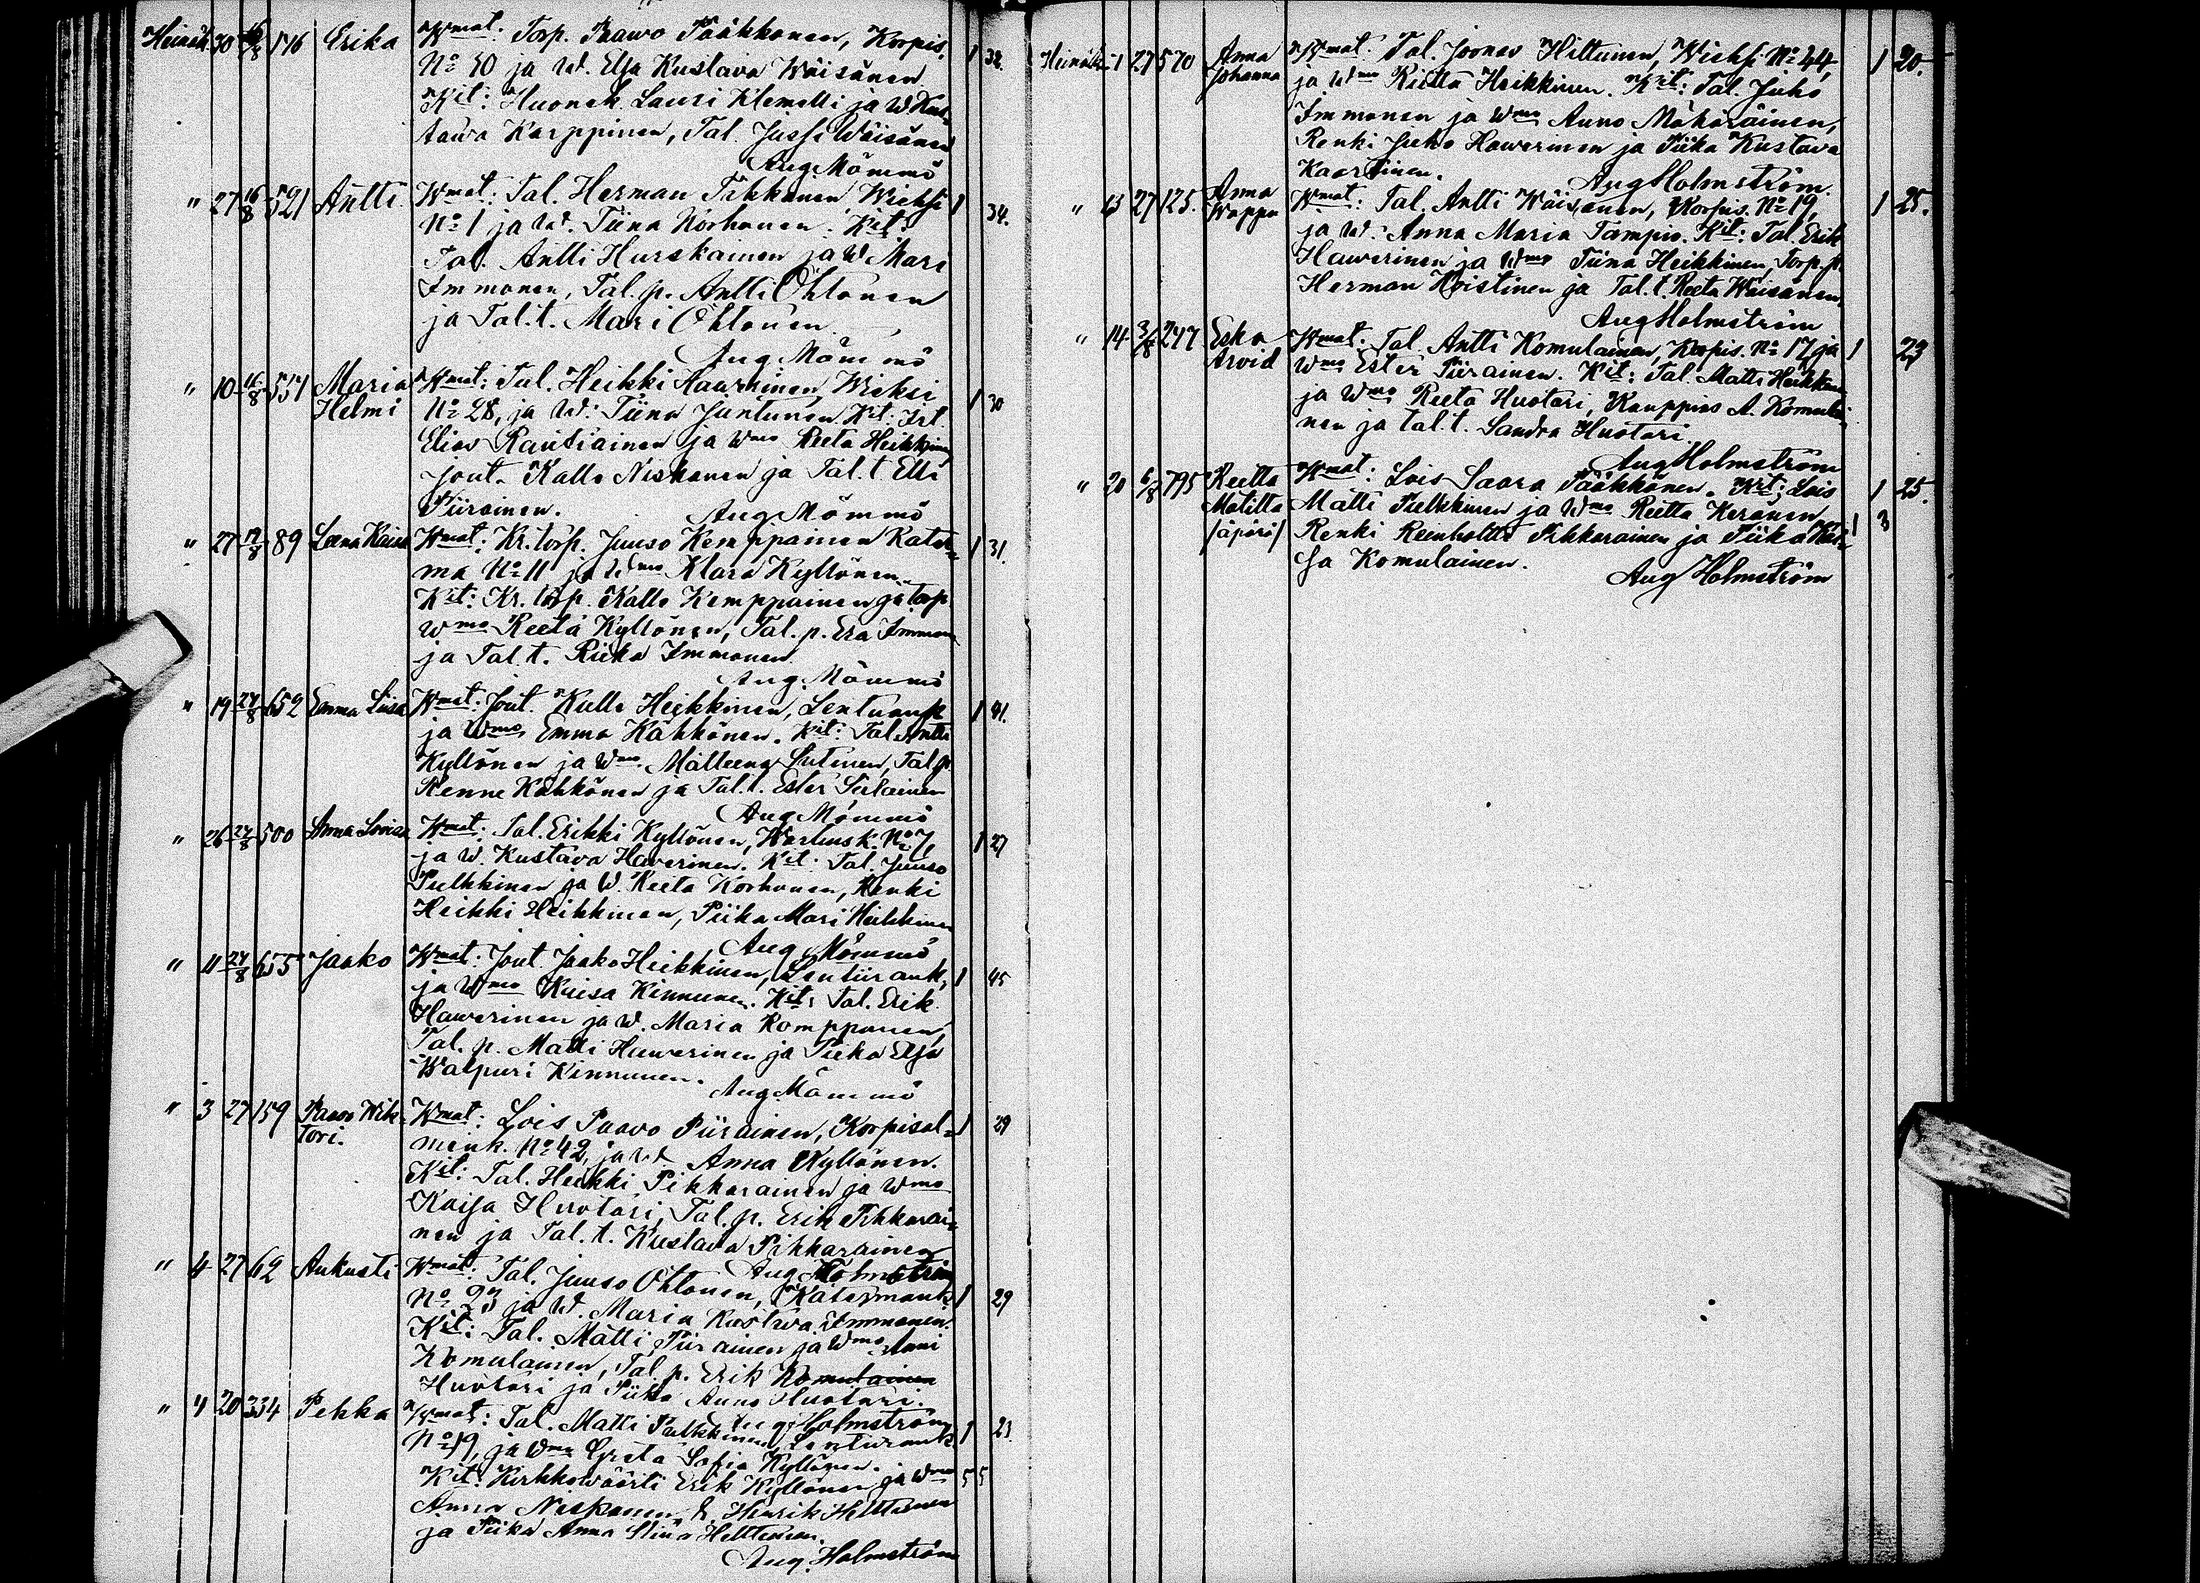 Heinäk. 30 16/8 516 Erika Wmat: Torp. Paawo Pääkkönen, Korpis. 1 32.
No 50 ja W. Elsa Kustava Wäisänen
Kit: Huonek. Lauri Klemetti ja W. Kus-
tawa Karppinen, Tal. Jussi Wäisänen
Aug. Mömmö
" 27 16/8 521 Antti Wmat: Tal. Herman Pikkanen Wieksi 1 34.
No 1 ja W. Tiina Korhonen. Kit:
Tal. Antti Hurskainen ja W Mari
Immonen, Tal. p. Antti Ohtonen
ja Tal. t. Mari Ohtonen
Aug. Mömmö
" 10 16/8 537 Maria Helmi Wmat: Tal. Heikki Hawerinen, Wieksi 1 30
No 28, ja W: Tiina Juntunen. Kit: Irt.
Elias Rautiainen ja Wmo Reeta Heikkinen,
Jout. Kalle Niskanen ja Tal. t. Elli
Piirainen.
Aug Mömmö
" 27 17/8 89 Leena Kaisa Wmat: Kr. torp. Juuso Kemppainen Kater- 1 31.
ma No 11 ja Wmo Klara Kyllönen.
Kit: Kr. torp. Kalle Kemppainen ja torp.
Wmo Reeta Kyllönen, Tal. p. Era Immonen
ja Tal. t. Riika Immonen.
Aug. Mömmö
" 19 24/8 652 Emma Liisa Wmat: Jout. Kalle Heikkinen, Lentuank 1 41.
ja Wmo Emma Kähkönen. Kit: Tal. Antti
Kyllönen ja Wmo Malleena Lutinen, Tal. p.
Renne Kähkönen ja Tal. t. Ester Sirkainen
Aug Mömmö
" 26 24/8 500 Anna Loviisa Wmat: Tal. Erikki Kyllönen, Wartiusk. No 7, 1 27
ja W. Kustava Hawerinen. Kit: Tal. Juuso
Pulkkinen ja W. Reeta Korhonen, Renki
Heikki Heikkinen, Piika Mari Heikkinen
Aug Mömmö
" 11 24/8 655 Jaako Wmat: Jout. Jaako Heikkinen, Lentiirank, 1 45
ja Wmo Kaisa Kinnunen. Kit: Tal. Erik
Hawerinen ja W. Maria Komppanen,
Tal. p. Matti Hawerinen ja Piika Elsa
Walpuri Kinnunen.
Aug. Mömmö
" 3 27 159 Paavo Wik- tori. Wmat: Lois Paavo Piirainen, Korpisal- 1 29
menk. No 42, ja W Anna Kyllönen.
Kit: Tal. Heikki Pikkarainen ja Wmo
Kaisa Huotari, Tal. p. Erik Pikkarai-
nen ja Tal. t. Kustava Pikkarainen
Aug Holmström
" 4 27 62 Aukusti Wmat: Tal. Juuso Ohtonen, Katermank 1 29
No 23 ja W. Maria Kustava Immonen.
Kit: Tal. Matti Piirainen ja Wmo Anni
Komulainen, Tal. p. Erik Komulainen
Huotari ja Piika Anna Huotari.
Aug Holmström
" 4 20 334 Pekka Wmat: Tal. Matti Pulkkinen, Lentiirank 1 23
No 19, ja Wmo Greta Sofia Kyllönen.
Kit: Kirkkowäärti Erik Kyllönen ja Wmo 5 5
Anna Niskanen, Henrik Hiltunen
ja Piika Anna Stiina Hiltunen.
Aug. Holmström
Heinäk. 1 27 570 Anna Johanna Wmat: Tal. Joonas Hiltunen, Wieksi No 44, 1 20.
ja Wmo Riitta Heikkinen. Kit: Tal. Juho
Immonen ja Wmo Anna Mäkäräinen,
Renki Juho Hawerinen ja Piika Kustava
Kaartinen.
Aug Holmström.
" 13 27 125. Anna Wappu Wmat: Tal. Antti Wäisänen, Korpis. No 19, 1 25.
ja W. Anna Maria Tampio. Kit: Tal. Erik
Hawerinen ja Wmo Tiina Heikkinen, Torp. p.
Herman Koistinen ja Tal. t. Reeta Wäisänen,
Aug Holmström
" 14 3/8 247 Esko Arvid Wmat: Tal. Antti Komulainen, Korpis. No 17 ja 1 23
Wmo Ester Piirainen. Kit: Tal. Matti Heikkinen
ja Wmo Reeta Huotari, Kauppias A. Komulai-
nen ja tal. t. Sandra Huotari.
Aug Holmström
" 20 6/8 795 Reetta Matilta /äpärä/ Wmat: Lois Saara Pääkkönen. Kit: Lois 1 25.
Matti Pulkkinen ja Wmo Reetta Keränen 1 3
Renki Reinholtti Pikkarainen ja Piika Kai-
sa Komulainen.
Aug Holmström